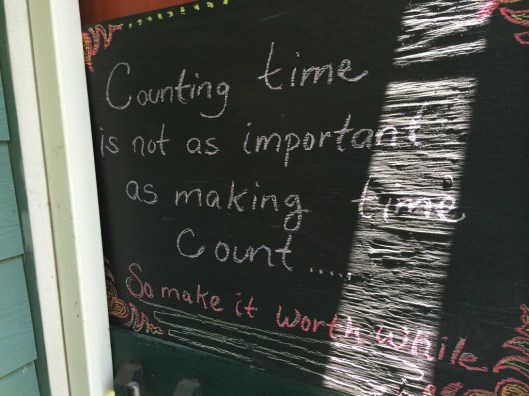 Counting time
is not as important
as making time
Count.....
So make it worth while